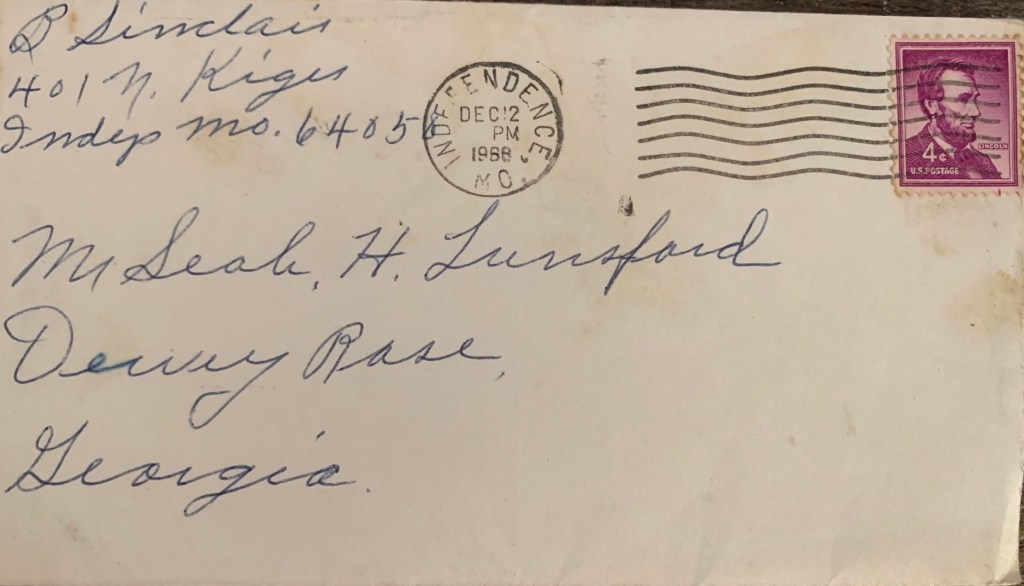 B Sinclair
401 N. Kiger
Indep Mo. 64050
INDEPENDENCE
DEC 12
PM
1988
MO.
LINCOLN
4¢
U.S. POSTAGE
Mr Seab, H. Lunsford
Dewey Rose,
Georgia.